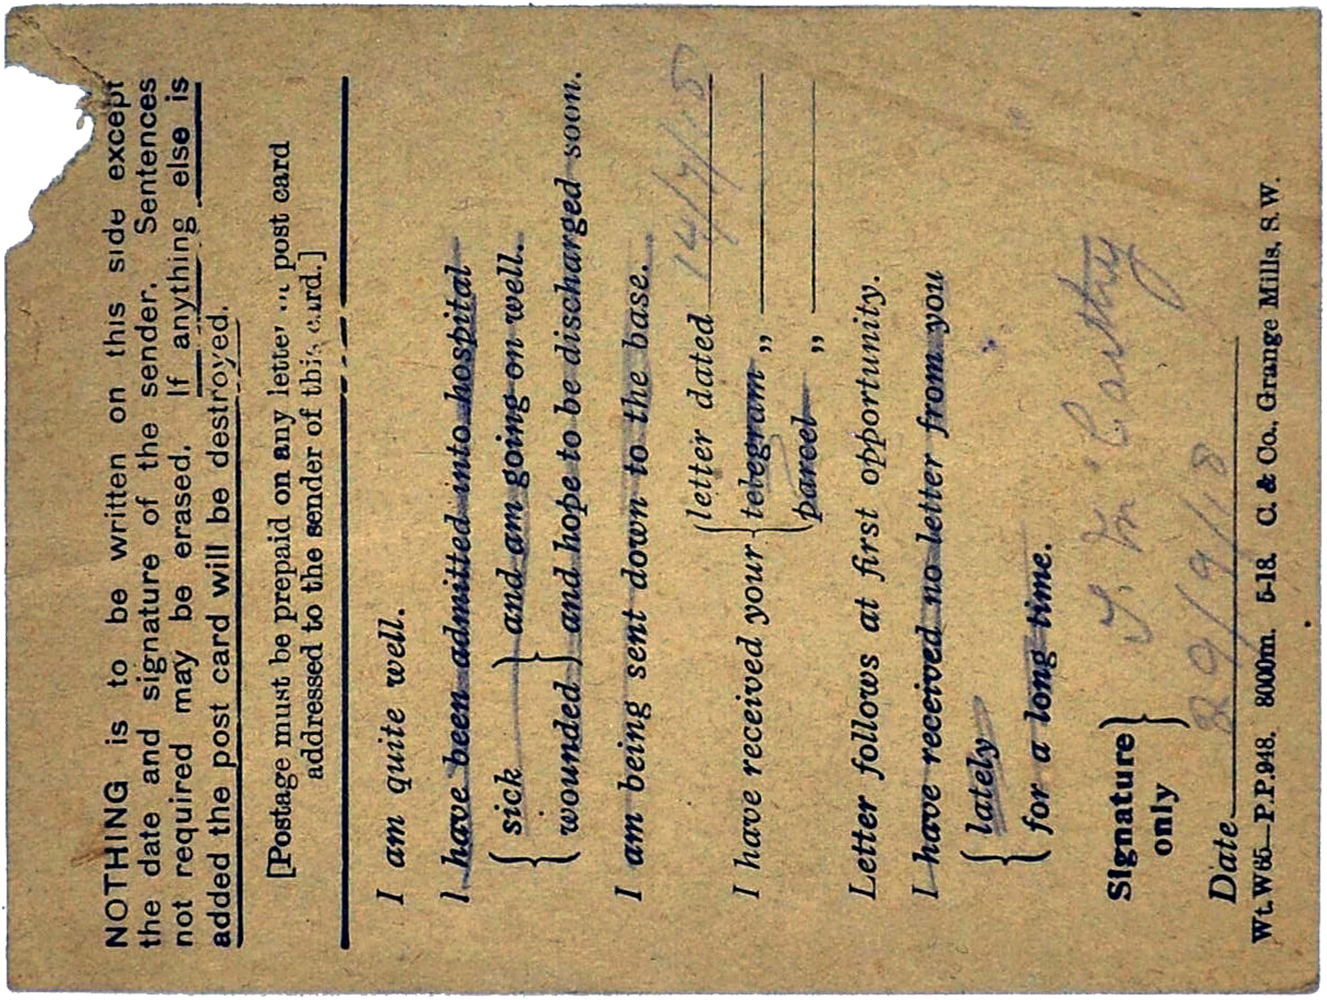 NOTHING is to be written on this side except
the date and signature of the sender. Sentences
not required may be erased. If anything else is
added the post card will be destroyed.
[Postage must be prepaid on any letter post card
addressed to the sender of this card.]
I am quite well.
I have been admitted into hospital
{ sick } and am going on well.
{ wounded } and hope to be discharged soon.
I am being sent down to the base.
I have received your { letter dated 14/7/18
telegram „
parcel „
Letter follows at first opportunity.
I have received no letter from you
{ lately
for a long time.
Signature } only
Date 29/9/18
Wt.W65—P.P.948. 8000m. 5-18. C. & Co., Grange Mills, S.W.